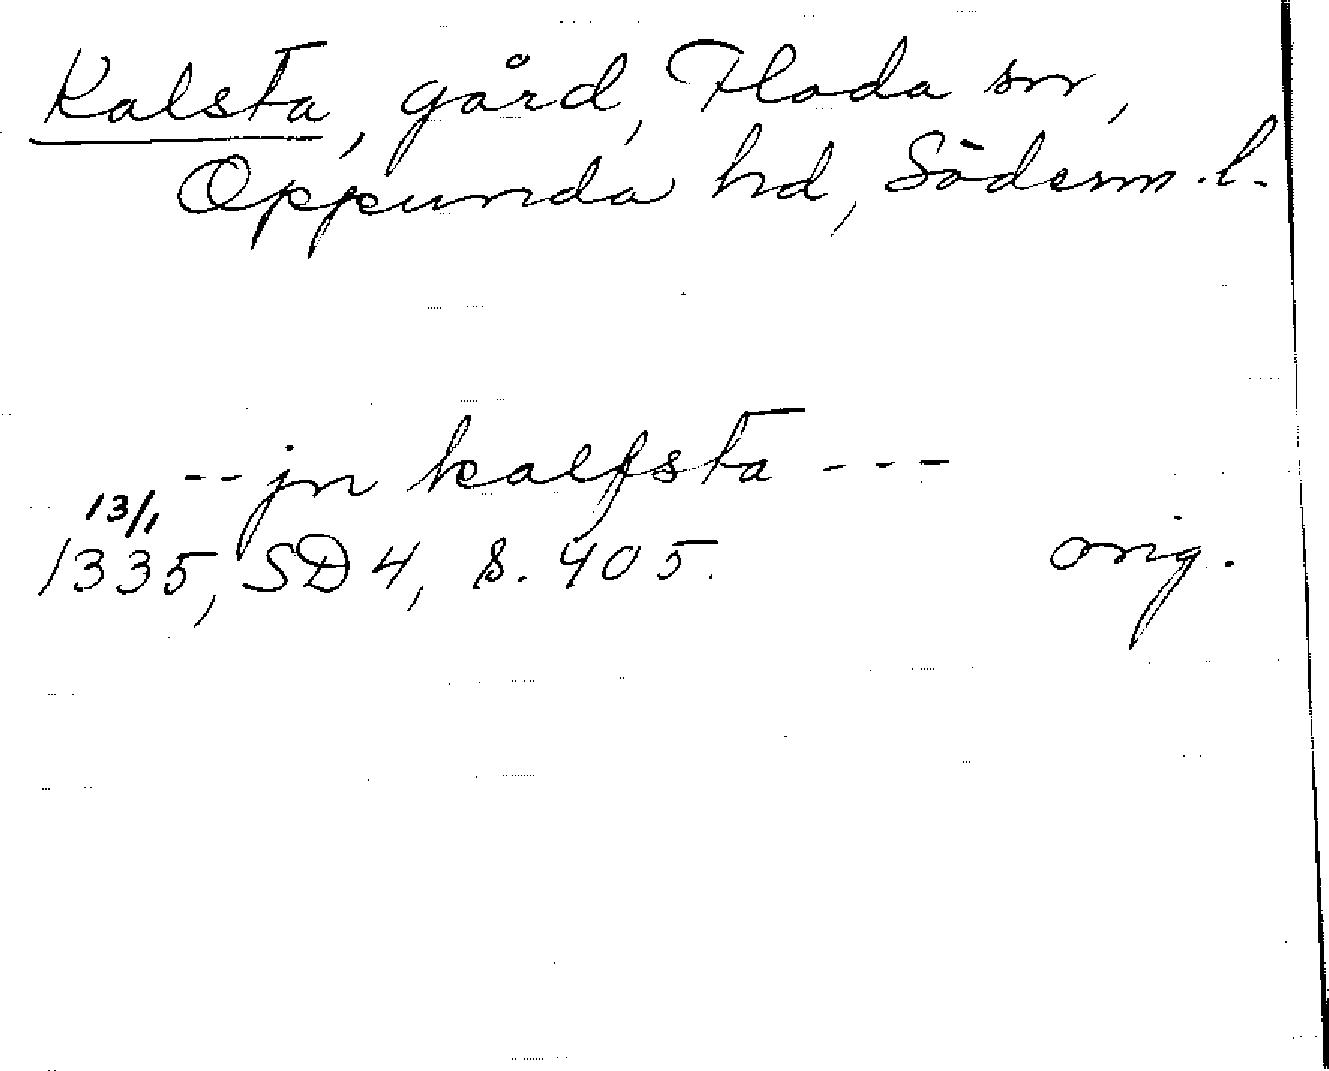 Kalsta, gård, Floda sn,
Oppunda hd, Söderm. l.
-- jn kalfsta ---
13/1
1335, SD 4, s. 405. orig.